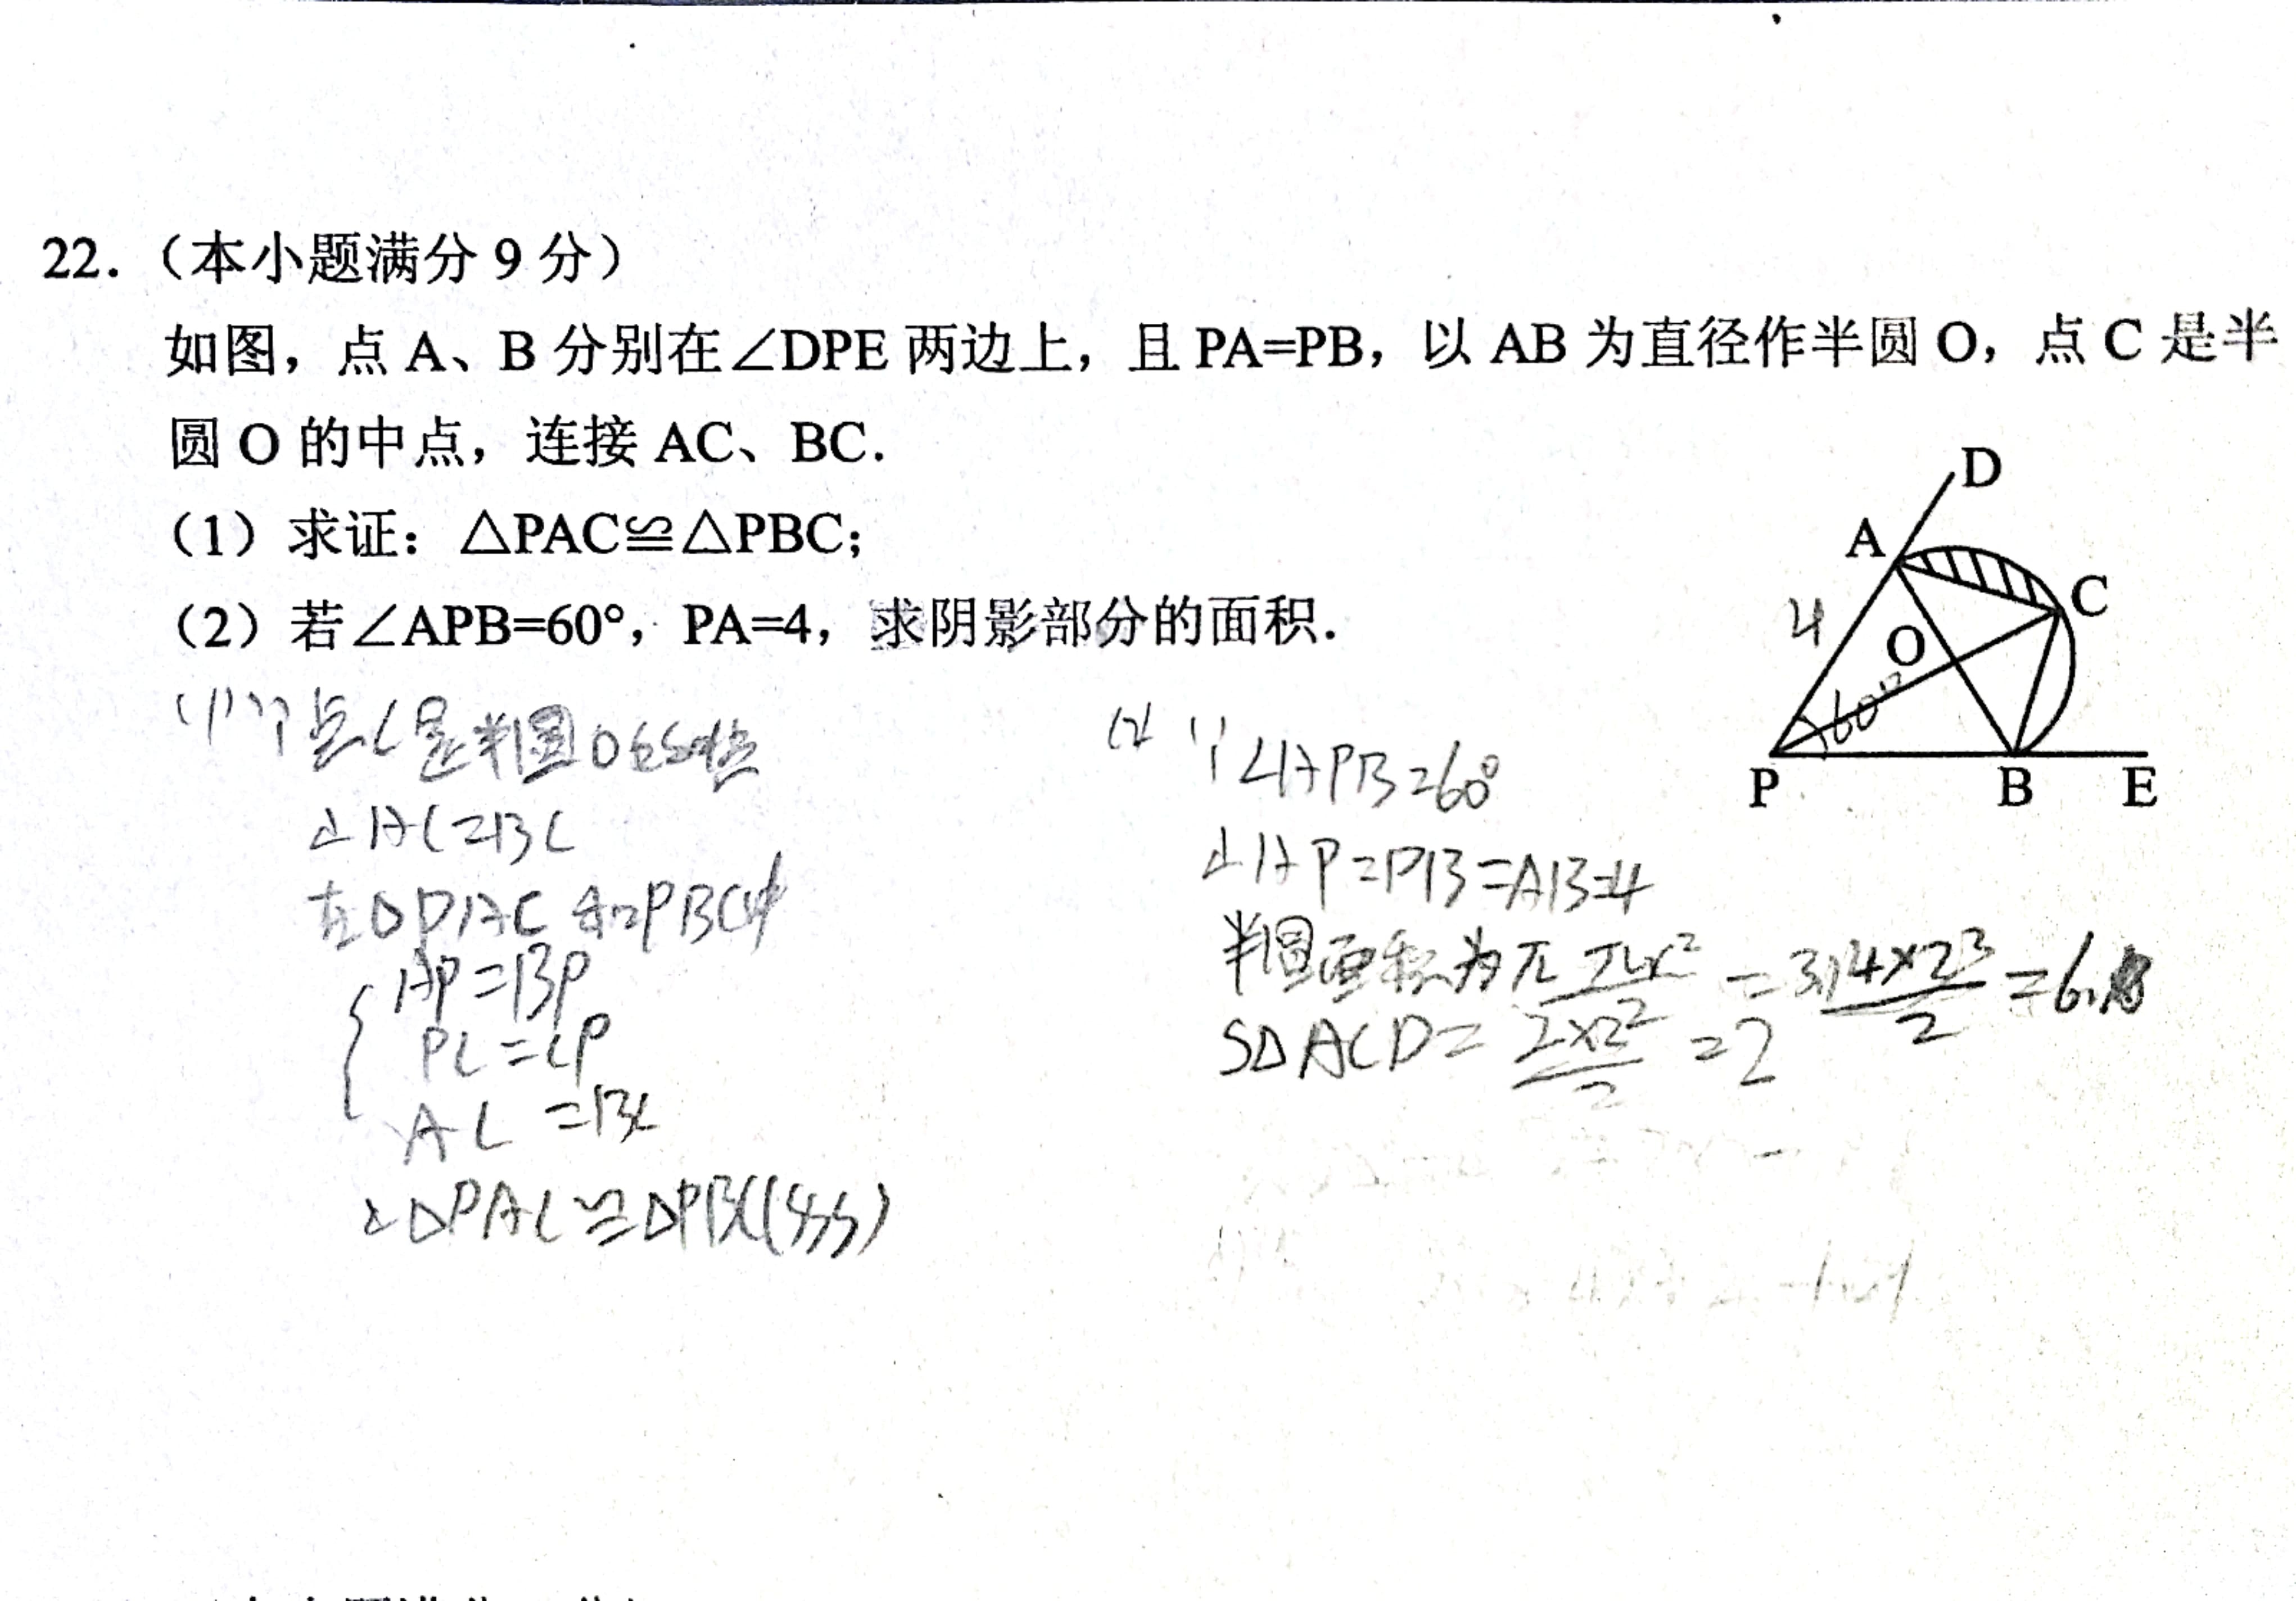 22.（本小题满分 9 分）
如图，点 A、B 分别在∠DPE 两边上，且 PA=PB，以 AB 为直径作半圆 O，点 C 是半
圆 O 的中点，连接 AC、BC.
（1）求证：△PAC≌△PBC；
（2）若∠APB=60°，PA=4，求阴影部分的面积.
D
A
C
4
O
60°
P
B
E
(1) ∵点C是半圆O的中点
∴AC=BC
在△PAC和PBC中
AP=BP
PC=CP
AC=BC
∴△PAC≌△PBC(sss)
(2) ∵∠APB=60°
∴AP=PB=AB=4
半圆面积为
S△ACD= =2